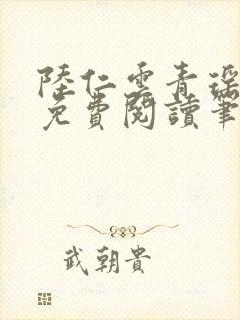 陸仁雲青瑤
免費閱讀筆
武朝貴